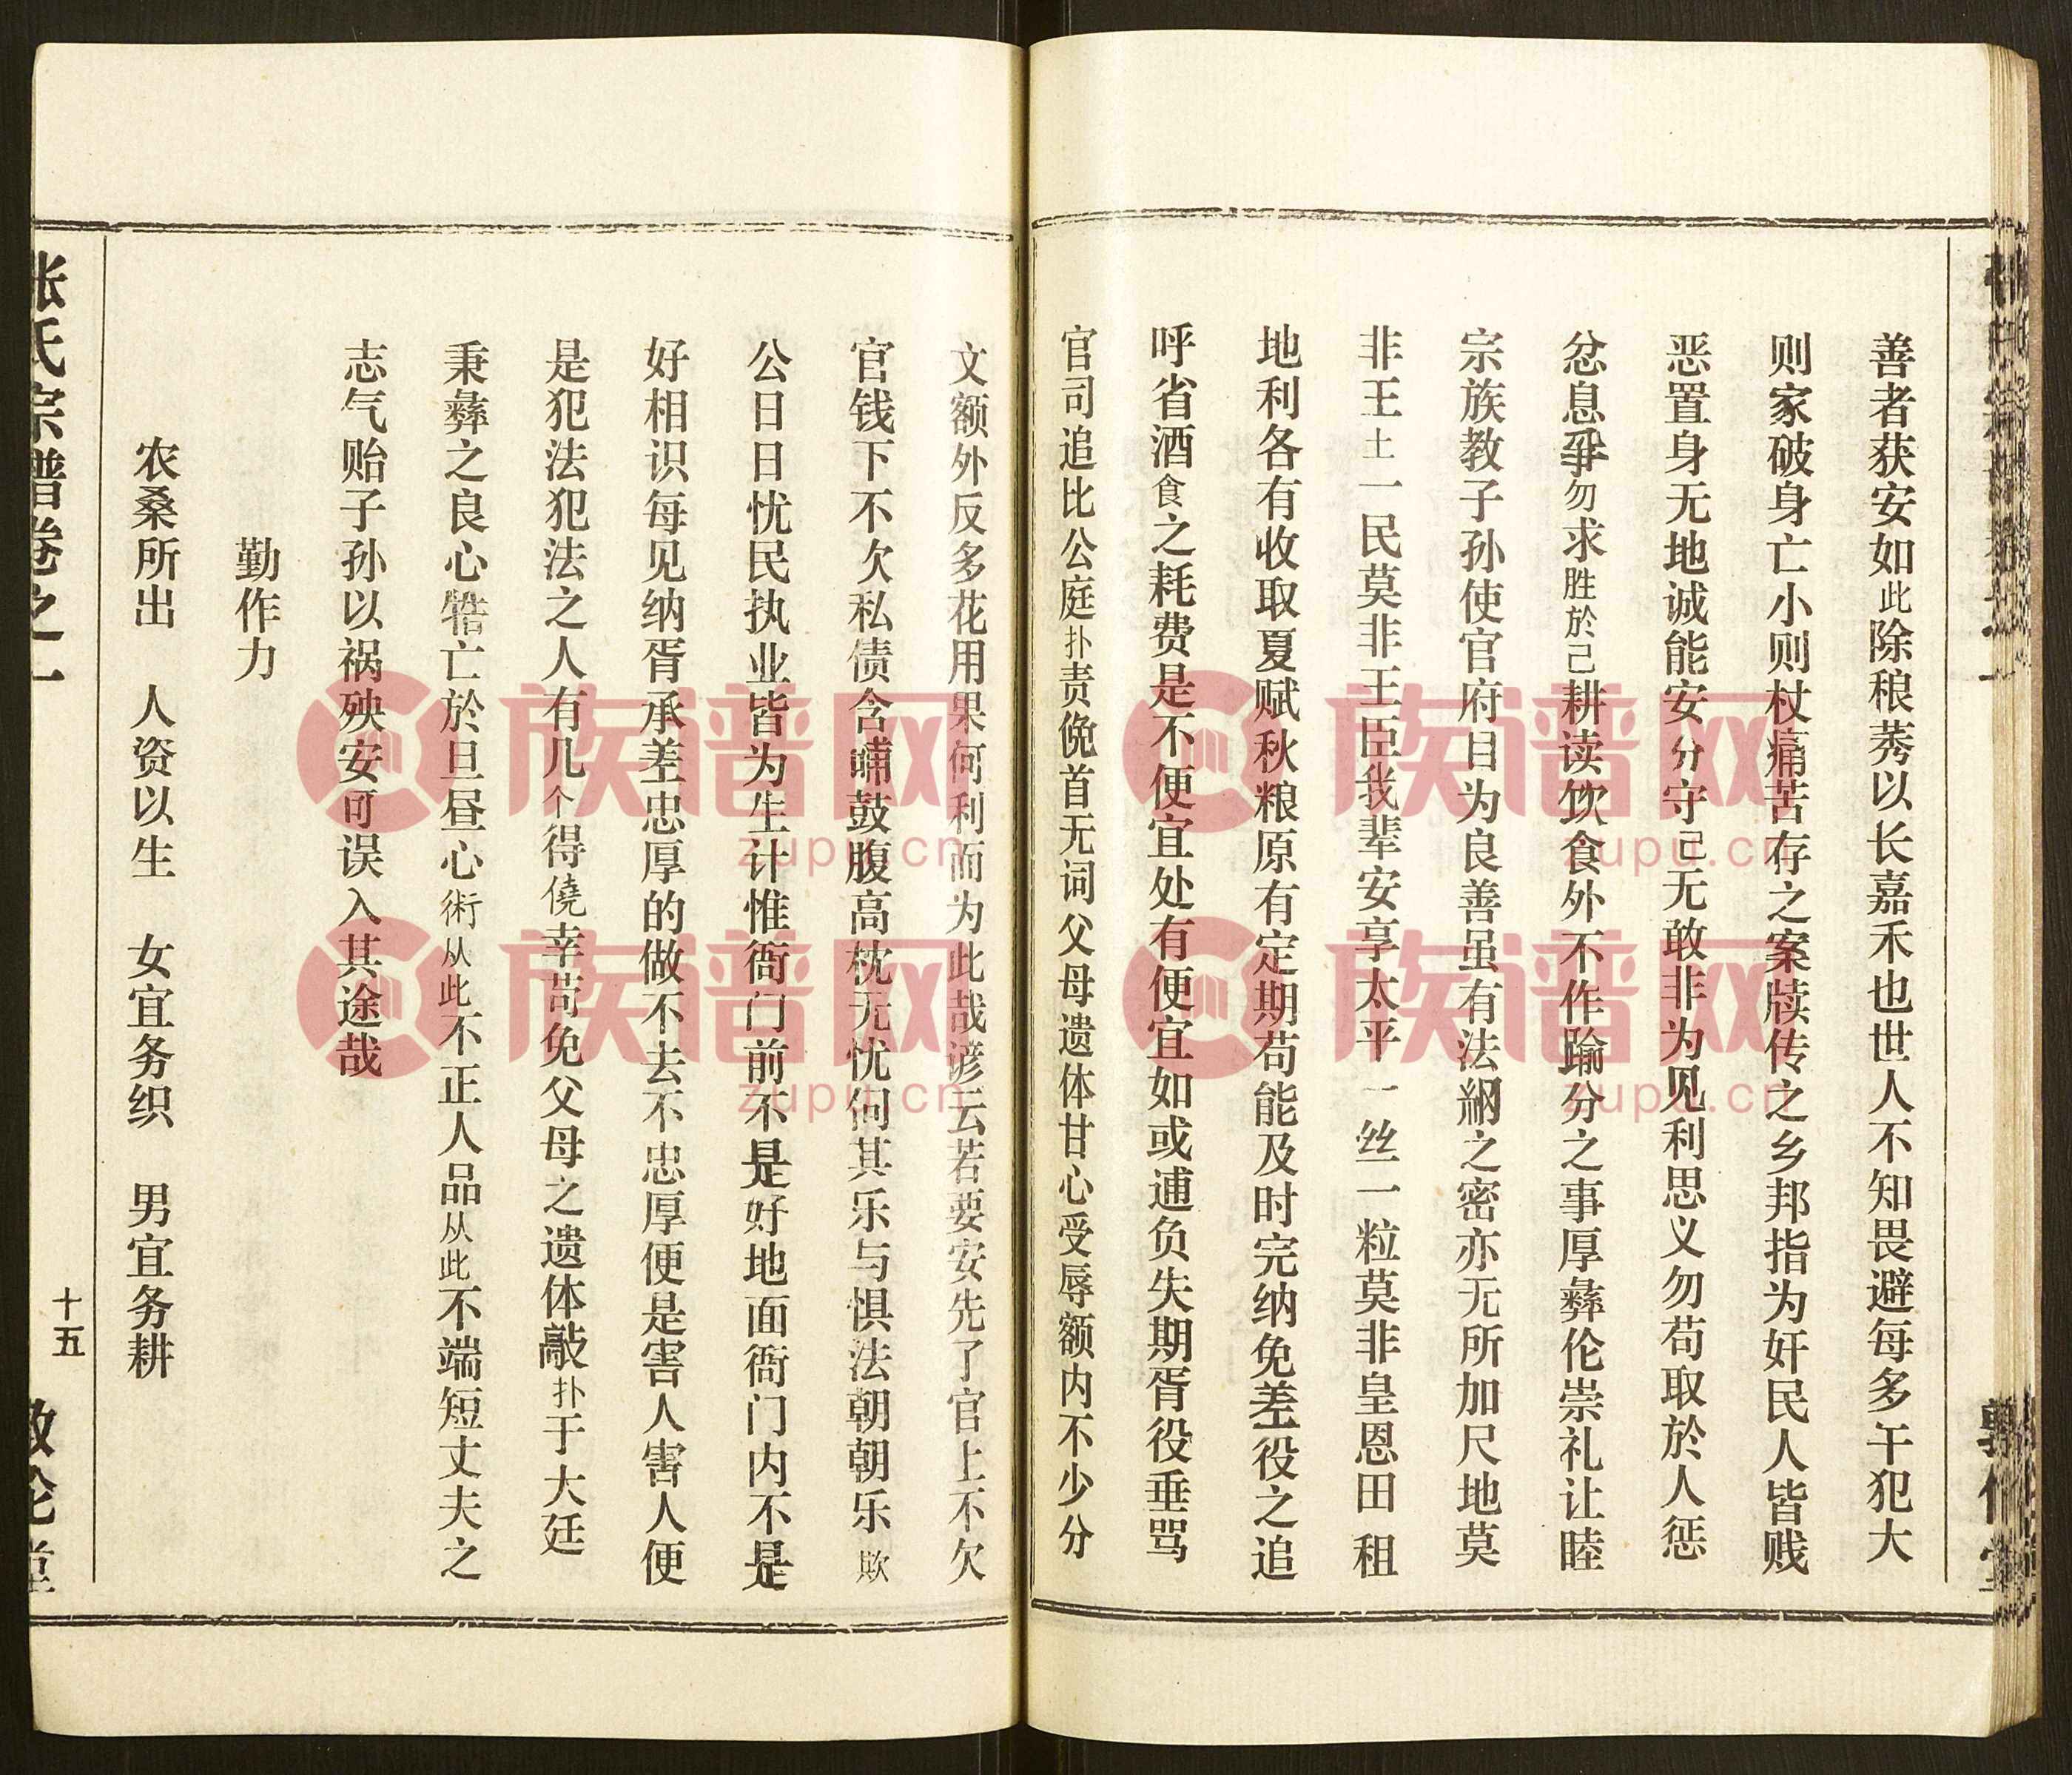 善者获安如此除稂莠以长嘉禾也世人不知畏避每多干犯大
则家破身亡小则杖痛苦存之案牍传之乡邦指为奸民人皆贱
恶置身无地诚能安分守己无敢非为见利思义勿苟取於人惩
忿息爭勿求胜於己耕读饮食外不作踰分之事厚彝伦崇礼让睦
宗族教子孙使官府目为良善虽有法網之密亦无所加尺地莫
非王土一民莫非王臣我辈安享太平一丝一粒莫非皇恩田租
地利各有收取夏赋秋粮原有定期苟能及时完纳免差役之追
呼省酒食之耗费是不便宜处有便宜如或逋负失期胥役垂骂
官司追比公庭扑责俛首无词父母遗体甘心受辱额内不少分
文额外反多花用果何利而为此哉谚云若要安先了官上不欠
官钱下不欠私债含哺鼓腹高枕无忧何其乐与惧法朝朝乐欺
公日日忧民执业皆为生计惟衙门前不是好地面衙门内不是
好相识每见纳胥承差忠厚的做不去不忠厚便是害人害人便
是犯法犯法之人有几个得僥幸苟免父母之遗体敲扑于大廷
秉彝之良心牿亡於旦昼心術从此不正人品从此不端短丈夫之
志气贻子孙以祸殃安可误入其途哉
勤作力
农桑所出 人资以生 女宜务织 男宜务耕
张氏宗谱卷之一
十五
敦伦堂
族谱网
zupu.cn
族谱网
zupu.cn
族谱网
zupu.cn
族谱网
zupu.cn